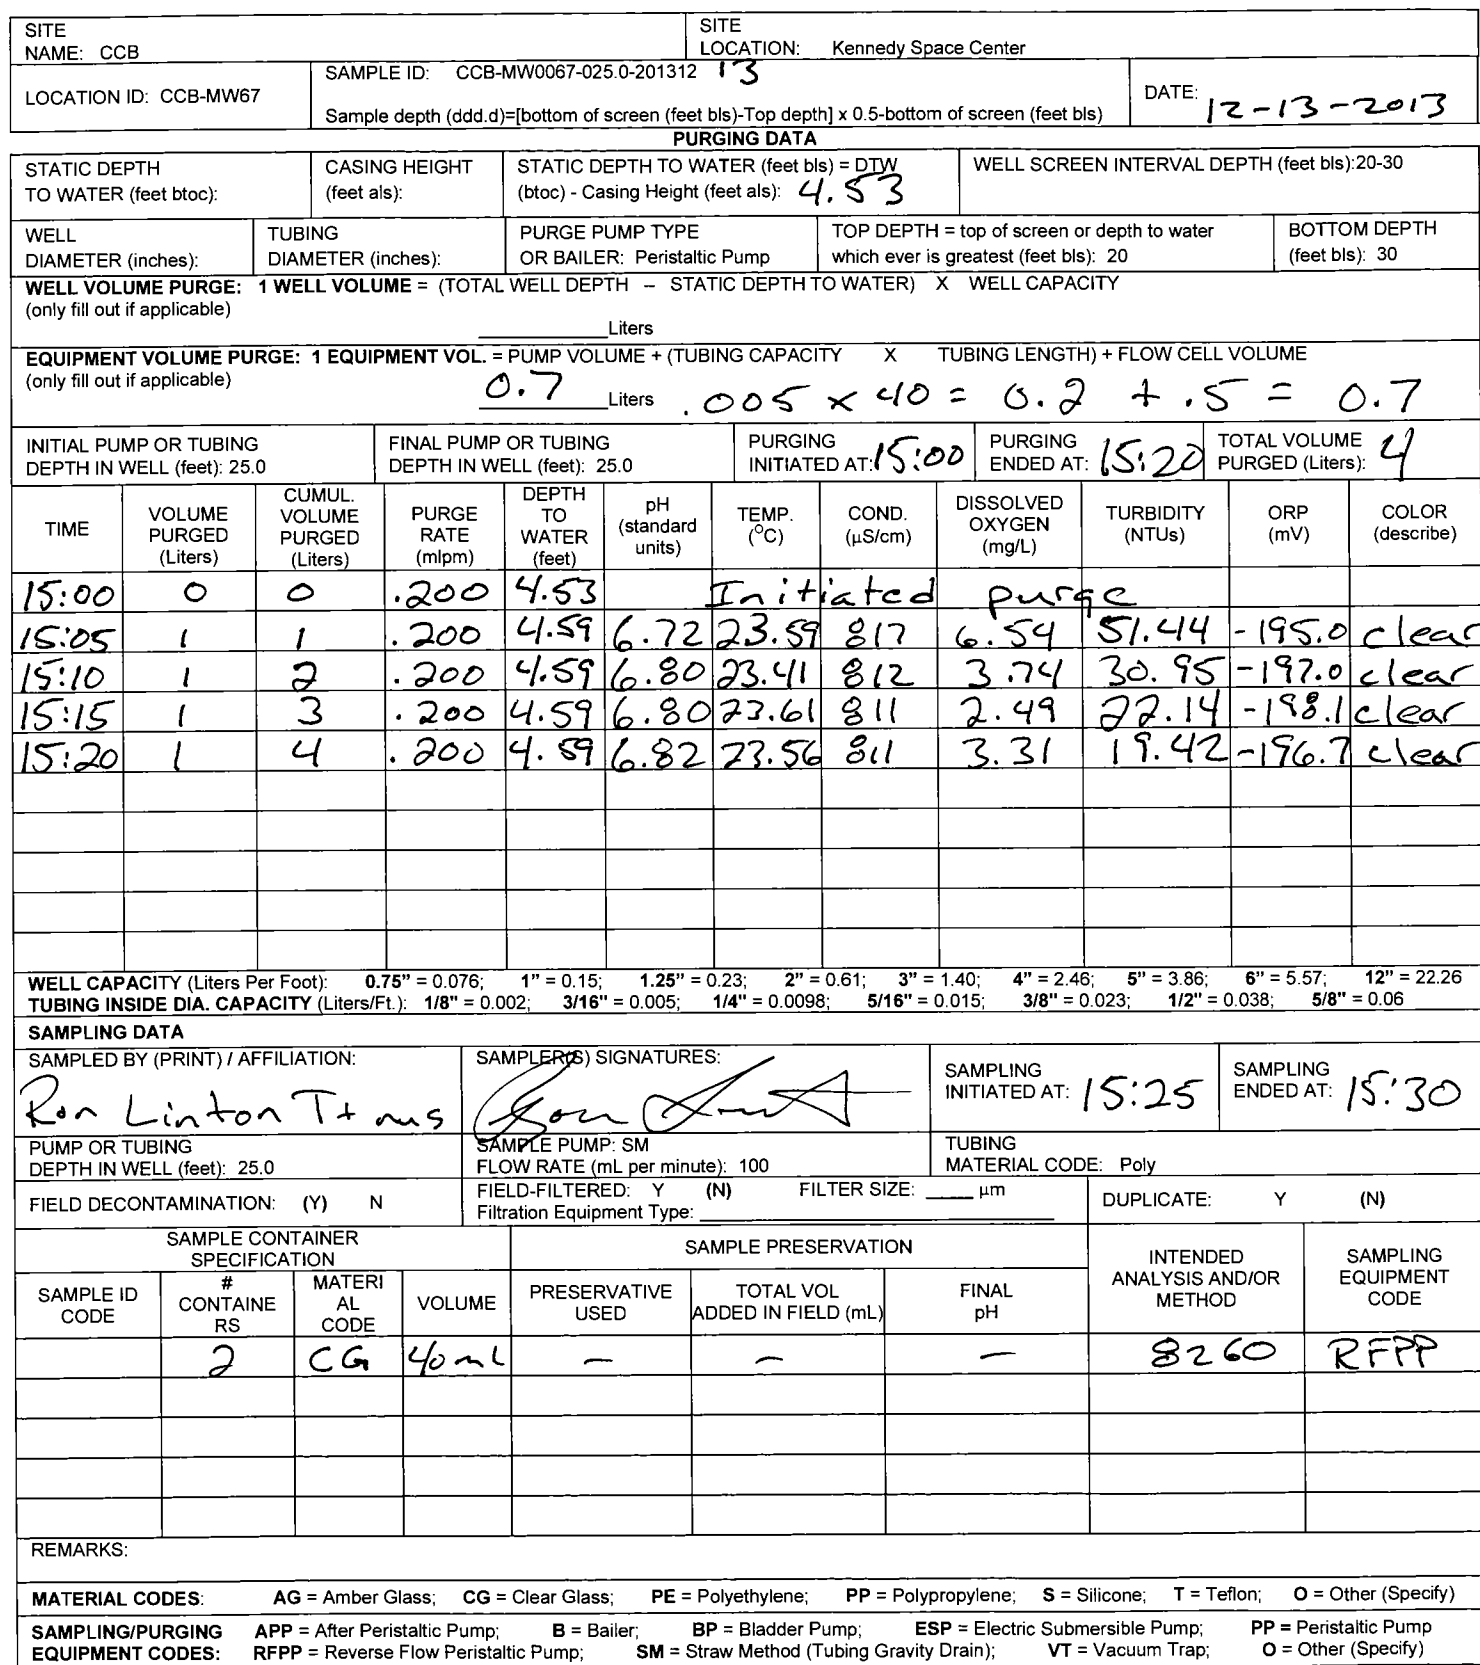 SITE
NAME: CCB
SITE
LOCATION: Kennedy Space Center
LOCATION ID: CCB-MW67
SAMPLE ID: CCB-MW0067-025.0-201312 13
Sample depth (ddd.d)=[bottom of screen (feet bls)-Top depth] x 0.5-bottom of screen (feet bls)
DATE: 12-13-2013
PURGING DATA
STATIC DEPTH
TO WATER (feet btoc):
CASING HEIGHT
(feet als):
STATIC DEPTH TO WATER (feet bls) = DTW
(btoc) - Casing Height (feet als): 4.53
WELL SCREEN INTERVAL DEPTH (feet bls):20-30
WELL
DIAMETER (inches):
TUBING
DIAMETER (inches):
PURGE PUMP TYPE
OR BAILER: Peristaltic Pump
TOP DEPTH = top of screen or depth to water
which ever is greatest (feet bls): 20
BOTTOM DEPTH
(feet bls): 30
WELL VOLUME PURGE: 1 WELL VOLUME = (TOTAL WELL DEPTH – STATIC DEPTH TO WATER) X WELL CAPACITY
(only fill out if applicable)
Liters
EQUIPMENT VOLUME PURGE: 1 EQUIPMENT VOL. = PUMP VOLUME + (TUBING CAPACITY X TUBING LENGTH) + FLOW CELL VOLUME
(only fill out if applicable)
0.7 Liters .005 x 40 = 0.2 + .5 = 0.7
INITIAL PUMP OR TUBING
DEPTH IN WELL (feet): 25.0
FINAL PUMP OR TUBING
DEPTH IN WELL (feet): 25.0
PURGING
INITIATED AT: 15:00
PURGING
ENDED AT: 15:20
TOTAL VOLUME
PURGED (Liters): 4
TIME
VOLUME
PURGED
(Liters)
CUMUL.
VOLUME
PURGED
(Liters)
PURGE
RATE
(mlpm)
DEPTH
TO
WATER
(feet)
pH
(standard
units)
TEMP.
(°C)
COND.
(µS/cm)
DISSOLVED
OXYGEN
(mg/L)
TURBIDITY
(NTUs)
ORP
(mV)
COLOR
(describe)
15:00 0 0 .200 4.53 Initiated purge
15:05 1 1 .200 4.59 6.72 23.59 817 6.54 51.44 -195.0 clear
15:10 1 2 .200 4.59 6.80 23.41 812 3.74 30.95 -197.0 clear
15:15 1 3 .200 4.59 6.80 23.61 811 2.49 22.14 -198.1 clear
15:20 1 4 .200 4.59 6.82 23.56 811 3.31 19.42 -196.7 clear
WELL CAPACITY (Liters Per Foot): 0.75" = 0.076; 1" = 0.15; 1.25" = 0.23; 2" = 0.61; 3" = 1.40; 4" = 2.46; 5" = 3.86; 6" = 5.57; 12" = 22.26
TUBING INSIDE DIA. CAPACITY (Liters/Ft.): 1/8" = 0.002; 3/16" = 0.005; 1/4" = 0.0098; 5/16" = 0.015; 3/8" = 0.023; 1/2" = 0.038; 5/8" = 0.06
SAMPLING DATA
SAMPLED BY (PRINT) / AFFILIATION:
Ron Linton
SAMPLER(S) SIGNATURES:
SAMPLING
INITIATED AT: 15:25
SAMPLING
ENDED AT: 15:30
PUMP OR TUBING
DEPTH IN WELL (feet): 25.0
SAMPLE PUMP: SM
FLOW RATE (mL per minute): 100
TUBING
MATERIAL CODE: Poly
FIELD DECONTAMINATION: (Y) N
FIELD-FILTERED: Y (N) FILTER SIZE: ____ µm
Filtration Equipment Type:
DUPLICATE: Y (N)
SAMPLE CONTAINER
SPECIFICATION
SAMPLE PRESERVATION
INTENDED
ANALYSIS AND/OR
METHOD
SAMPLING
EQUIPMENT
CODE
SAMPLE ID
CODE
#
CONTAINE
RS
MATERI
AL
CODE
VOLUME
PRESERVATIVE
USED
TOTAL VOL
ADDED IN FIELD (mL)
FINAL
pH
2 CG 40 mL – – – 8260 RFPP
REMARKS:
MATERIAL CODES: AG = Amber Glass; CG = Clear Glass; PE = Polyethylene; PP = Polypropylene; S = Silicone; T = Teflon; O = Other (Specify)
SAMPLING/PURGING APP = After Peristaltic Pump; B = Bailer; BP = Bladder Pump; ESP = Electric Submersible Pump; PP = Peristaltic Pump
EQUIPMENT CODES: RFPP = Reverse Flow Peristaltic Pump; SM = Straw Method (Tubing Gravity Drain); VT = Vacuum Trap; O = Other (Specify)